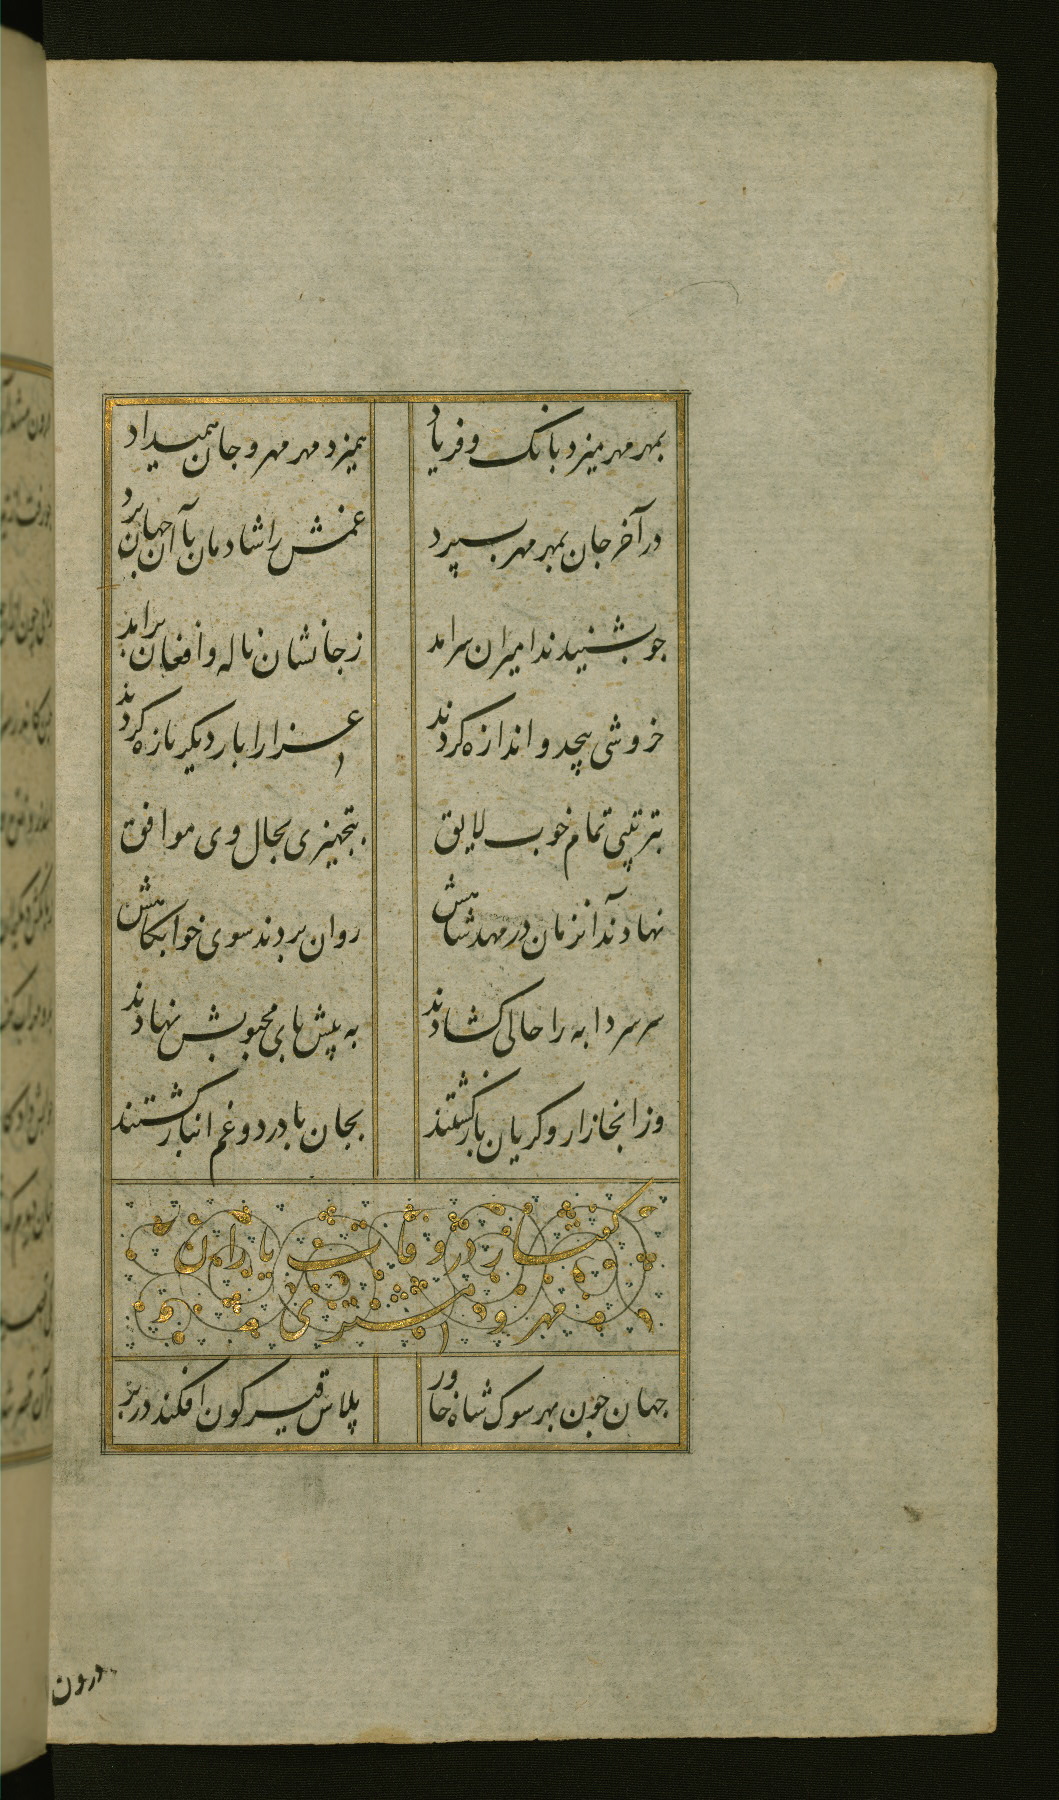 بمهر مهر میزد بانک و فریاد
همیزد مهر مهر و جان همیداد
در آخر جان بمهر مهر بسپرد
غمش را شادمان با آن جهان برد
جو بشنیدند امیران سرامد
ز جانشان ناله و افغان برامد
خروشی بیحد و اندازه کردند
عزا را بار دیکر تازه کردند
بترتیبی تمام خوب لایق
بتجهیزی بحال وی موافق
نهادند آنزمان در مهد شاهش
روان بردند سوی خوابکاهش
سر سردابه را حالی کشادند
به پیش پای محبوبش نهادند
وز انجا زار و کریان بازکشتند
بجان با درد و غم انباز کشتند
گفتار در وفات یاران
مهر و مشتری
جهان جون بهر سوک شاه خاور
پلاس قیرکون افکند در بر
درون